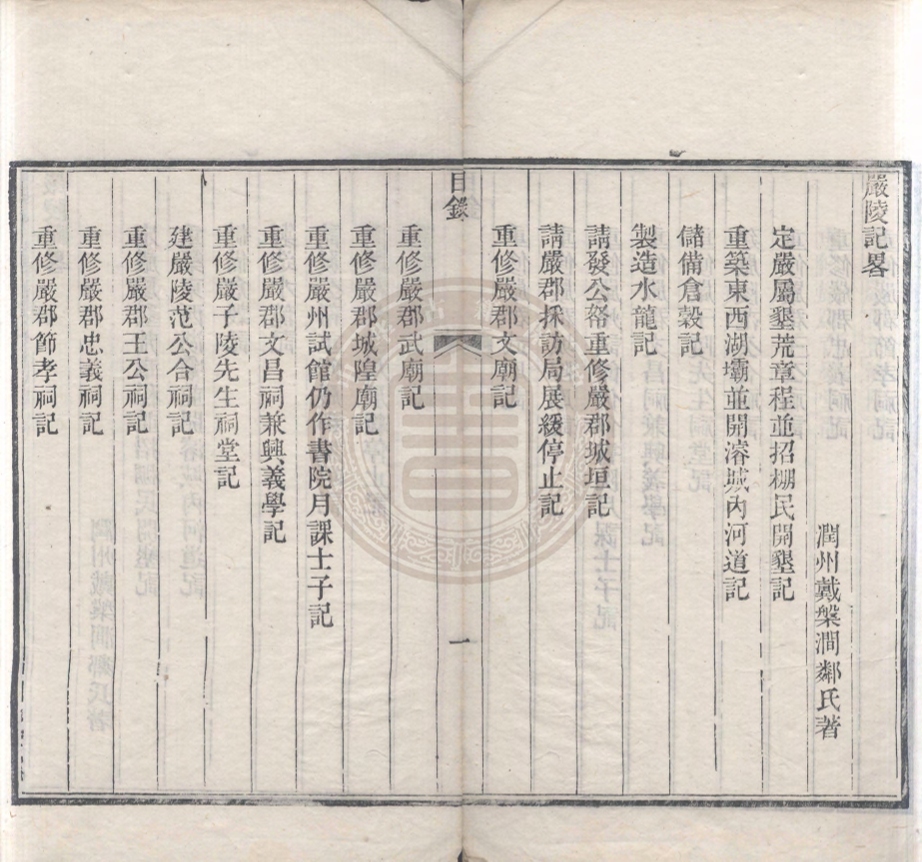 嚴陵記畧
潤州戴槃澗鄰氏著
定嚴屬墾荒章程並招棚民開墾記
重築東西湖壩並開濬城內河道記
儲備倉穀記
製造水龍記
請發公帑重修嚴郡城垣記
請嚴郡採訪局展緩停止記
重修嚴郡文廟記
目錄
一
重修嚴郡武廟記
重修嚴郡城隍廟記
重修嚴州試館仍作書院月課士子記
重修嚴郡文昌祠兼興義學記
重修嚴子陵先生祠堂記
建嚴陵范公合祠記
重修嚴郡王公祠記
重修嚴郡忠義祠記
重修嚴郡節孝祠記